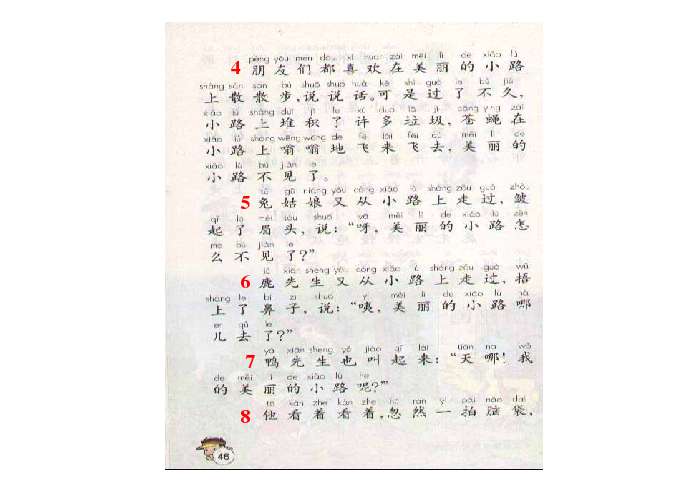 péng yǒu men dōu xǐ huan zài měi lì de xiǎo lù
4 朋友们都喜欢在美丽的小路
shàng sàn sàn bù shuō shuo huà kě shì guò le bù jiǔ
上散散步,说说话。可是过了不久,
xiǎo lù shàng duī jī le xǔ duō lā jī cāng ying zài
小路上堆积了许多垃圾,苍蝇在
xiǎo lù shàng wēng wēng de fēi lái fēi qù měi lì de
小路上嗡嗡地飞来飞去,美丽的
xiǎo lù bú jiàn le
小路不见了。
tù gū niang yòu cóng xiǎo lù shàng zǒu guò zhòu
5 兔姑娘又从小路上走过,皱
qǐ le méi tóu shuō yā měi lì de xiǎo lù zěn
起了眉头,说:“呀,美丽的小路怎
me bú jiàn le
么不见了?”
lù xiān sheng yòu cóng xiǎo lù shàng zǒu guò wǔ
6 鹿先生又从小路上走过,捂
shàng le bí zi shuō yí měi lì de xiǎo lù nǎ
上了鼻子,说:“咦,美丽的小路哪
er qù le
儿去了?”
yā xiān sheng yě jiào qǐ lai tiān na wǒ
7 鸭先生也叫起来:“天哪!我
de měi lì de xiǎo lù ne
的美丽的小路呢?”
tā kàn zhe kàn zhe hū rán yì pāi nǎo dai
8 他看着看着,忽然一拍脑袋,
46